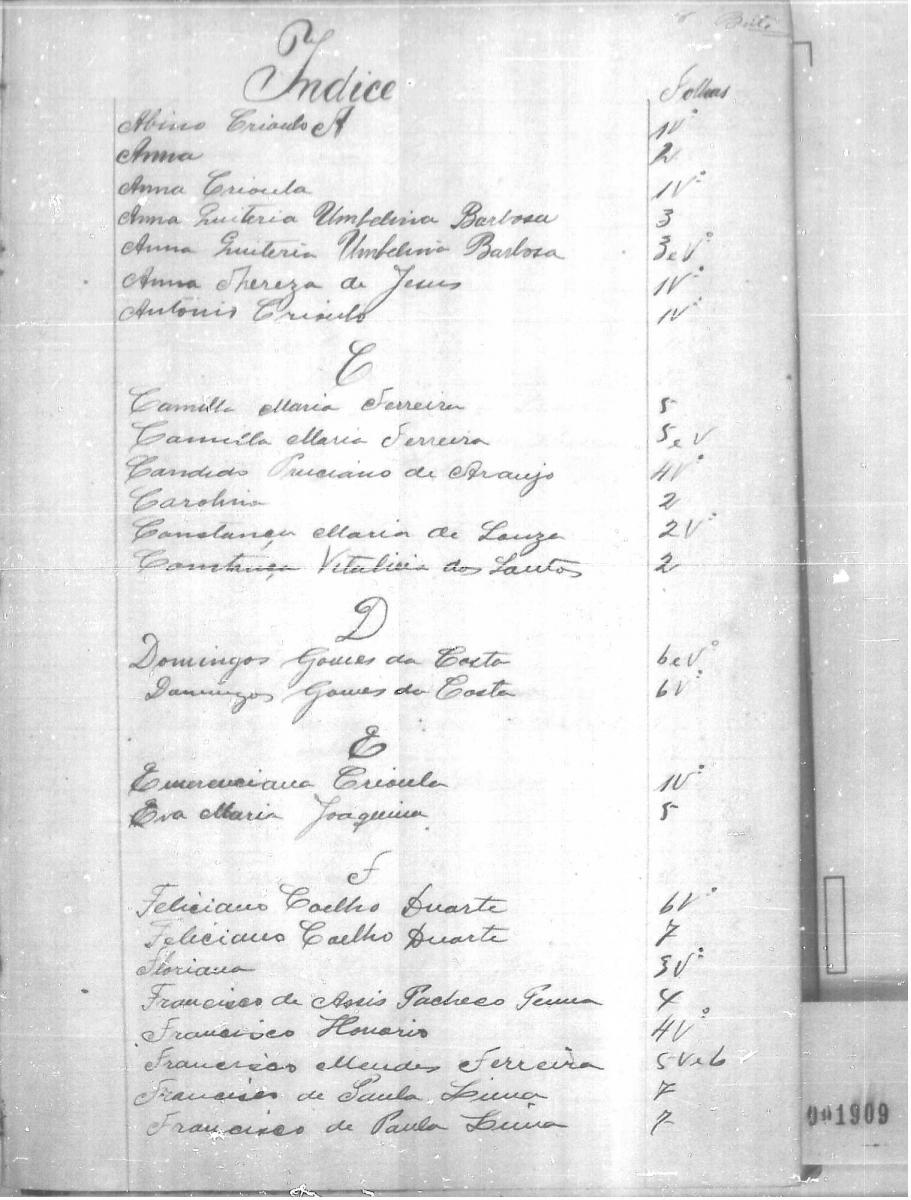 Britto
Indice Folhas
A
Abino Crioulo 1Vº
Anna 2
Anna Crioula 1Vº
Anna Quiteria Umbelina Barbosa 3
Anna Quiteria Umbelina Barbosa 3eVº
Anna Thereza de Jesus 1Vº
Antonio Crioulo 1Vº
C
Camilla Maria Ferreira 5
Camilla Maria Ferreira 5eV
Candido de Araujo 4Vº
Carolina 2
Constança Maria de Souza 2Vº
Constança Vitalicia dos Santos 2
D
Domingos Gomes da Costa 6eVº
Domingos Gomes da Costa 6Vº
E
Emerenciana Crioula 1Vº
Eva Maria Joaquina 5
F
Feliciano Coelho Duarte 6Vº
Feliciano Coelho Duarte 7
Floriana 3Vº
Francisco de Assis Pacheco Penna 4
Francisco Honorio 4Vº
Francisco Mendes Ferreira 5Ve6
Francisco de Paula Lima 7
Francisco de Paula Lima 7
001909